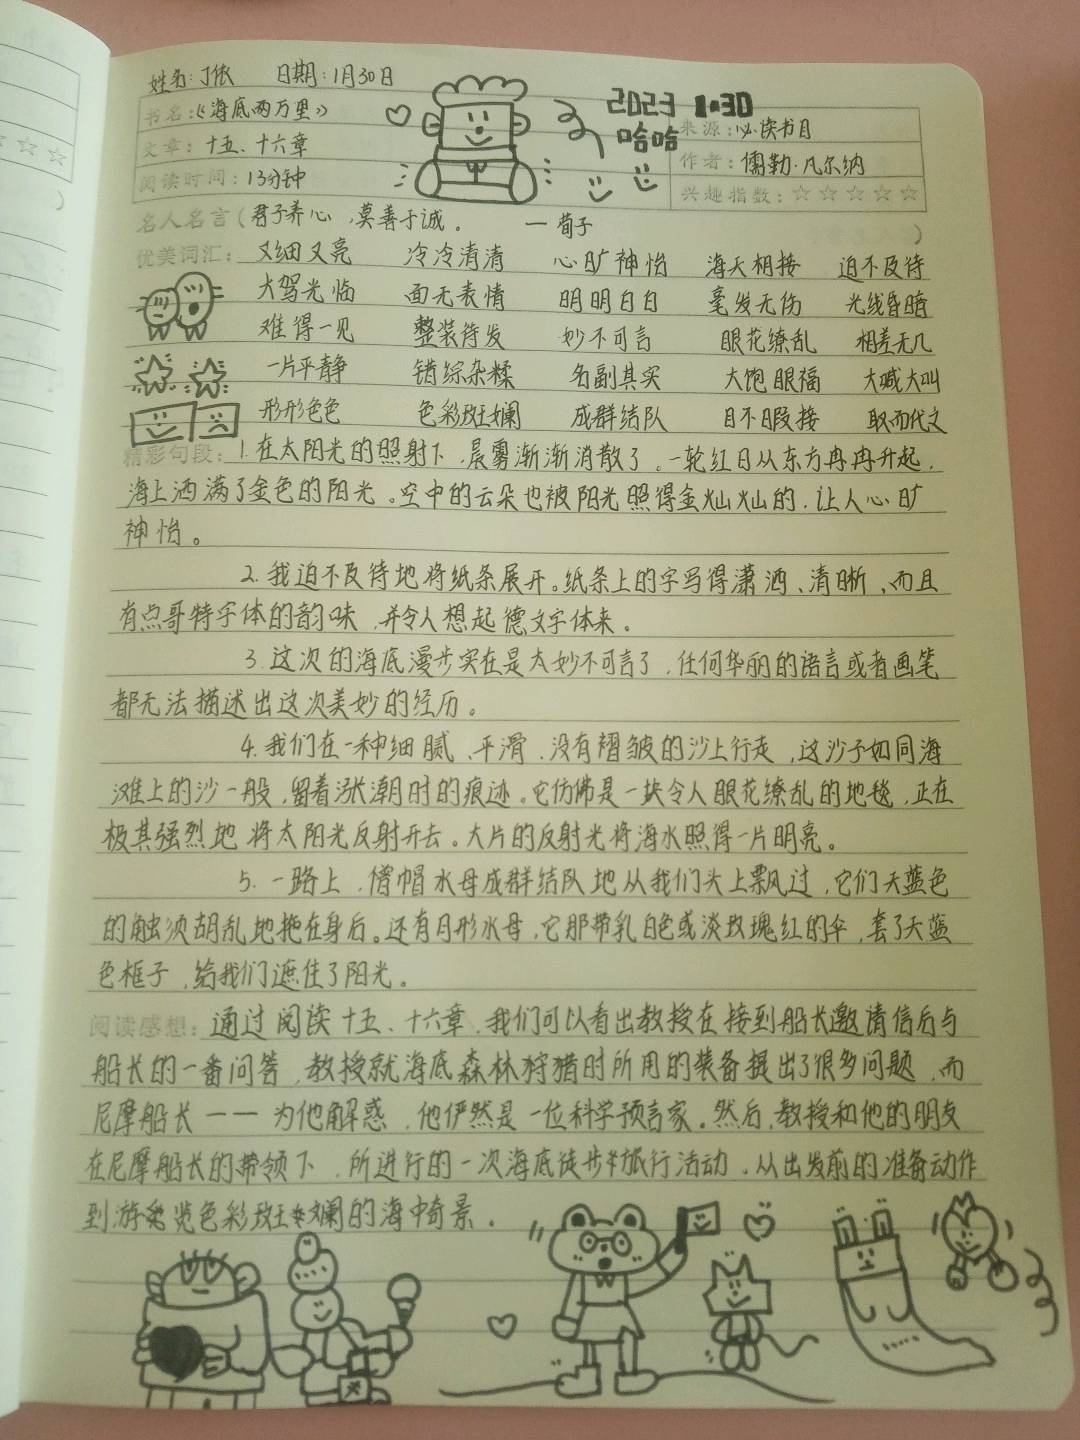 姓名:丁依 日期:1月30日
2023 1.30
哈哈
书名:《海底两万里》 来源:必读书目
文章:十五、十六章 作者:儒勒·凡尔纳
阅读时间:13分钟 兴趣指数:☆☆☆☆☆
名人名言(君子养心,莫善于诚。 —荀子 )
优美词汇: 又细又亮 冷冷清清 心旷神怡 海天相接 迫不及待
大驾光临 面无表情 明明白白 毫发无伤 光线昏暗
难得一见 整装待发 妙不可言 眼花缭乱 相差无几
一片平静 错综杂糅 名副其实 大饱眼福 大喊大叫
形形色色 色彩斑斓 成群结队 目不暇接 取而代文
精彩句段: 1.在太阳光的照射下,晨雾渐渐消散了。一轮红日从东方冉冉升起,
海上洒满了金色的阳光。空中的云朵也被阳光照得金灿灿的,让人心旷
神怡。
2.我迫不及待地将纸条展开。纸条上的字写得潇洒、清晰,而且
有点哥特字体的韵味,并令人想起德文字体来。
3.这次的海底漫步实在是太妙不可言了,任何华丽的语言或者画笔
都无法描述出这次美妙的经历。
4.我们在一种细腻、平滑、没有褶皱的沙上行走,这沙子如同海
滩上的沙一般,留着涨潮时的痕迹。它仿佛是一块令人眼花缭乱的地毯,正在
极其强烈地将太阳光反射开去。大片的反射光将海水照得一片明亮。
5.一路上,僧帽水母成群结队地从我们头上飘过,它们天蓝色
的触须胡乱地拖在身后。还有月形水母,它那带乳白色或淡玫瑰红的伞,套了天蓝
色框子,给我们遮住了阳光。
阅读感想: 通过阅读十五、十六章,我们可以看出教授在接到船长邀请信后与
船长的一番问答,教授就海底森林狩猎时所用的装备提出了很多问题,而
尼摩船长一一为他解惑,他俨然是一位科学预言家。然后,教授和他的朋友
在尼摩船长的带领下,所进行的一次海底徒步旅行活动。从出发前的准备动作
到游览色彩斑斓的海中奇景。